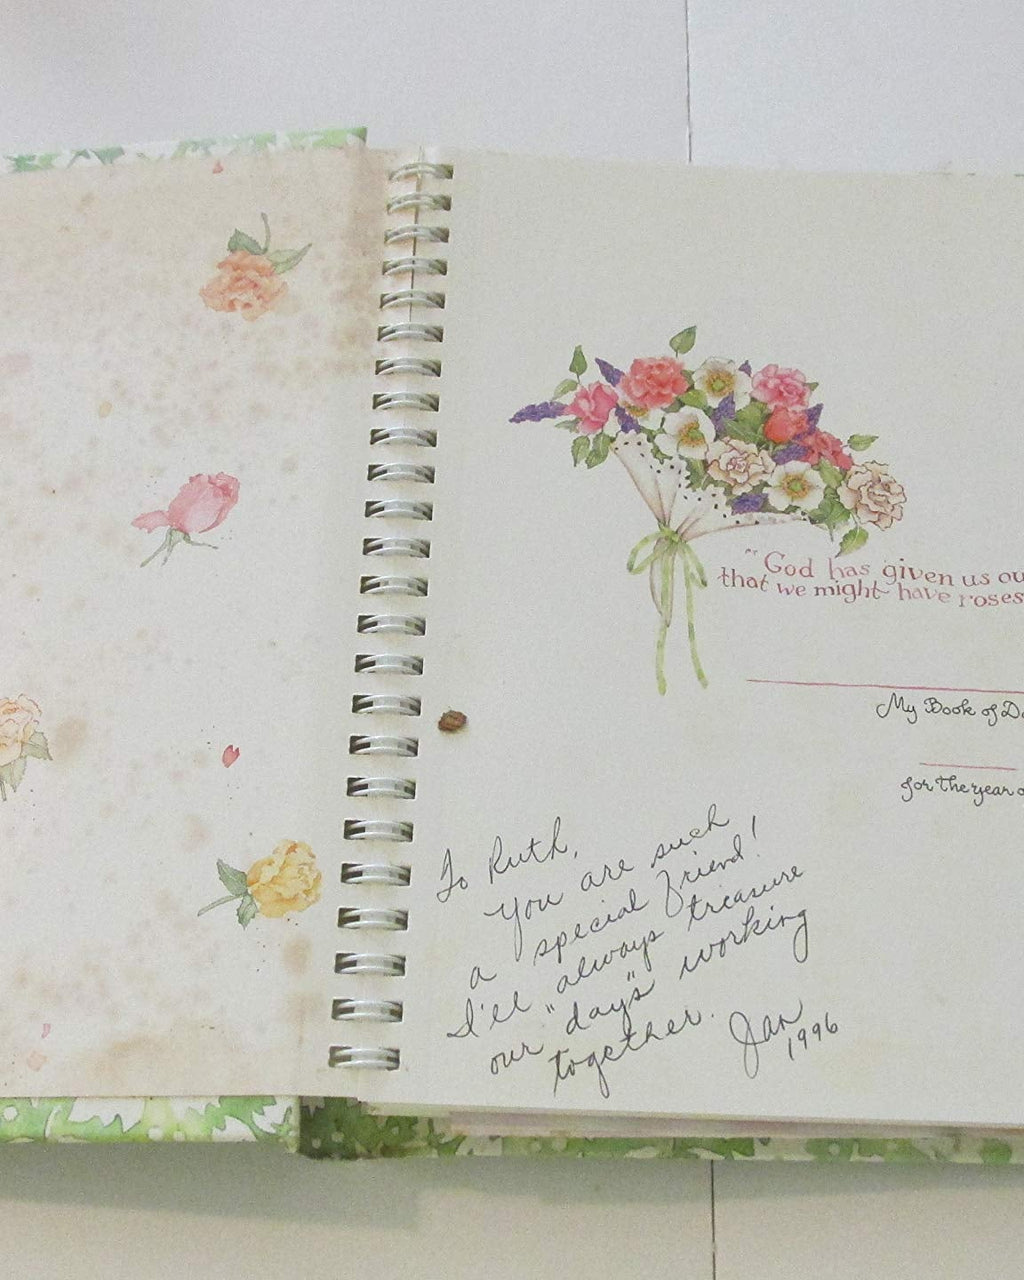 "God has given us ou
that we might have roses
My Book of Da
for the year o
To Ruth,
You are such
a special friend!
I'll always treasure
our "days" working
together.
Jan
1996